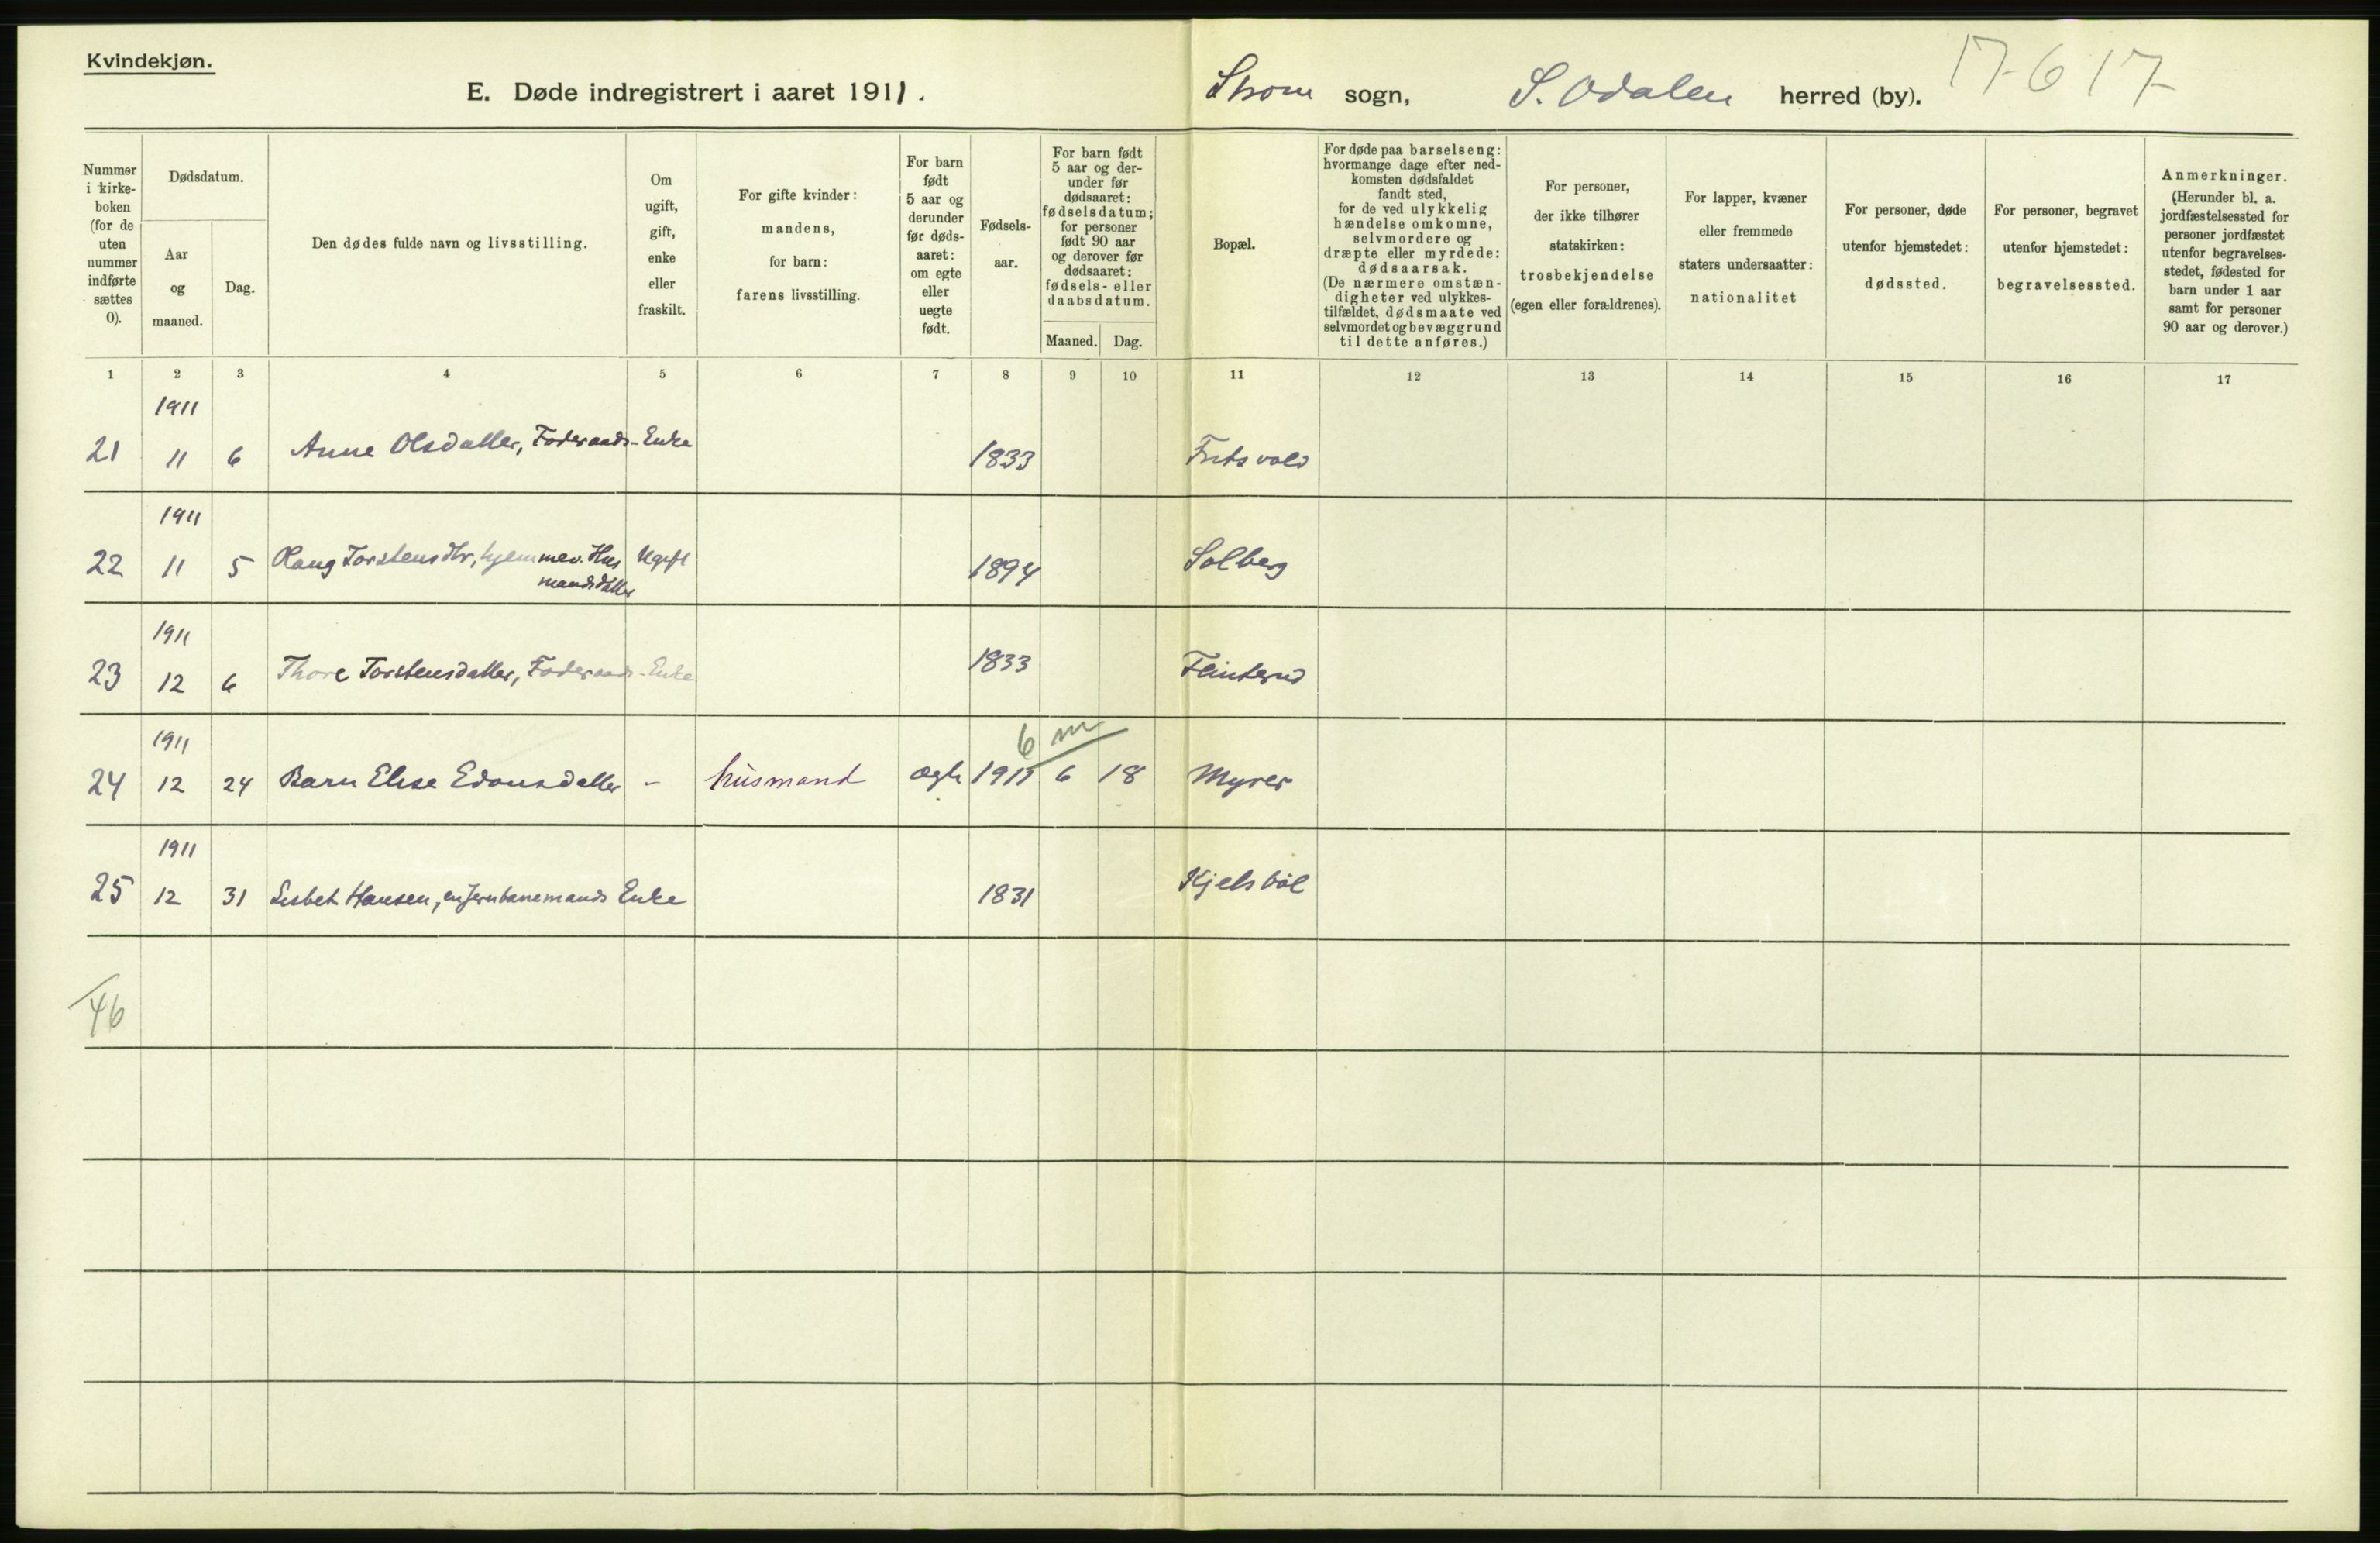 Kvindekjøn.
E. Døde indregistrert i aaret 1911.
Strøm sogn, S. Odalen herred (by).
17-6 17-
Nummer
i kirke-
boken
(for de
uten
nummer
indførte
sættes
0).
Dødsdatum.
Aar
og
maaned.
Dag.
Den dødes fulde navn og livsstilling.
Om
ugift,
gift,
enke
eller
fraskilt.
For gifte kvinder:
mandens,
for barn:
farens livsstilling.
For barn
født
5 aar og
derunder
før døds-
aaret:
om egte
eller
uegte
født.
Fødsels-
aar.
For barn født
5 aar og der-
under før
dødsaaret:
fødselsdatum;
for personer
født 90 aar
og derover før
dødsaaret:
fødsels- eller
daabsdatum.
Maaned. Dag.
Bopæl.
For døde paa barselseng:
hvormange dage efter ned-
komsten dødsfaldet
fandt sted,
for de ved ulykkelig
hændelse omkomne,
selvmordere og
dræpte eller myrdede:
dødsaarsak.
(De nærmere omstæn-
digheter ved ulykkes-
tilfældet, dødsmaate ved
selvmordet og bevæggrund
til dette anføres.)
For personer,
der ikke tilhører
statskirken:
trosbekjendelse
(egen eller forældrenes).
For lapper, kvæner
eller fremmede
staters undersaatter:
nationalitet
For personer, døde
utenfor hjemstedet:
dødssted.
For personer, begravet
utenfor hjemstedet:
begravelsessted.
Anmerkninger.
(Herunder bl. a.
jordfæstelsessted for
personer jordfæstet
utenfor begravelses-
stedet, fødested for
barn under 1 aar
samt for personer
90 aar og derover.)
1 2 3 4 5 6 7 8 9 10 11 12 13 14 15 16 17
1911
21 11 6 Anne Olsdatter, Foderaads- Enke 1833 Fritsvold
1911
22 11 5 Torstensdtr, hjemmev. Hus Ugift 1894 Solberg
mandsdatter
1911
23 12 6 Thore Torstensdatter, Foderaads- Enke 1833 Flinterud
1911
6 m
24 12 24 Barn Elise Edonsdatter - husmand ægte 1911 6 18 Myrer
1911
25 12 31 Lisbet Hansen, en Jernbanemands Enke 1831 Kjelsbøl
46